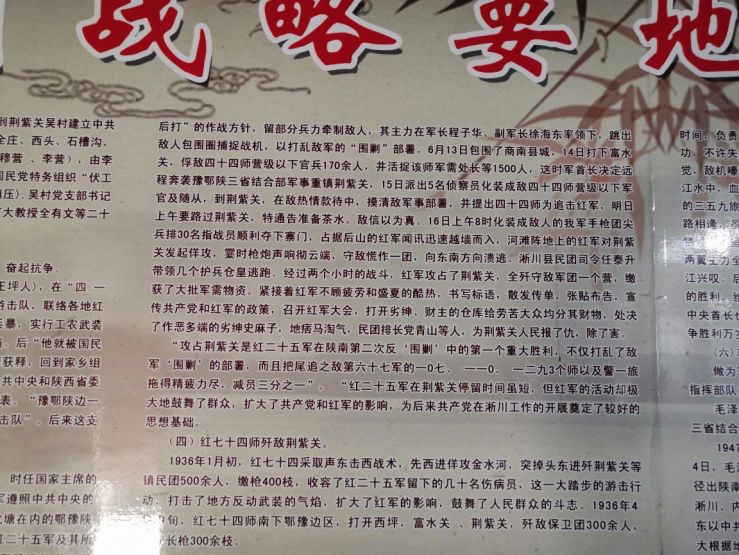 战略要地
到荆紫关吴村建立中共
全庄、西头、石槽沟、
穆营、李营），由李
国民党特务组织“伏工
镇压）、吴村党支部书记
大教授全有文等二十
奋起抗争。
王坪人），在“四.一
游击队，联络各地红
暴，实行工农武装
后“他就被国民
获释，回到家乡组
共中央和陕西省委
表。“豫鄂陕边一
击队”。后来这支
时任国家主席的
军遵照中共中央的
塘在内的鄂豫陕
二十五军及其所
后打”的作战方针，留部分兵力牵制敌人，其主力在军长程子华、副军长徐海东率领下，跳出
敌人包围圈捕捉战机，以打乱敌军的“围剿”部署。6月13日包围了商南县城，14日打下富水
关，俘敌四十四师营级以下官兵170余人，并活捉该师军需处长等1500人，这时军首长决定远
程奔袭豫鄂陕三省结合部军事重镇荆紫关，15日派出5名侦察员化装成敌四十四师营级以下军
官及随从，到荆紫关，在敌热情款待中，摸清敌军事部署，并提出四十四师为追击红军，明日
上午要路过荆紫关，特通告准备茶水。敌信以为真。16日上午8时化装成敌人的我军手枪团尖
兵排30名指战员顺利夺下寨门，占据后山的红军闻讯迅速越墙而入，河滩阵地上的红军对荆紫
关发起佯攻，霎时枪炮声响彻云端，守敌慌作一团，向东南方向溃逃。淅川县民团司令任泰升
带领几个护兵仓皇逃跑。经过两个小时的战斗，红军攻占了荆紫关，全歼守敌军团一个营，缴
获了大批军需物资。紧接着红军不顾疲劳和盛夏的酷热，书写标语，散发传单，张贴布告，宣
传共产党和红军的政策，召开红军大会，打开劣绅、财主的仓库给劳苦大众均分其财物，处决
了作恶多端的劣绅史麻子，地痞马淘气，民团排长党青山等人，为荆紫关人民报了仇，除了害。
“攻占荆紫关是红二十五军在陕南第二次反‘围剿’中的第一个重大胜利，不仅打乱了敌
军‘围剿’的部署，而且把尾追之敌第六十七军的一0七、一一0、一二九3个师以及警一旅
拖得精疲力尽，减员三分之一”。“红二十五军在荆紫关停留时间虽短，但红军的活动却极
大地鼓舞了群众，扩大了共产党和红军的影响，为后来共产党在淅川工作的开展奠定了较好的
思想基础。
（四）红七十四师歼敌荆紫关。
1936年1月初，红七十四采取声东击西战术，先西进佯攻金水河，突掉头东进歼荆紫关等
镇民团500余人，缴枪400枝，收容了红二十五军留下的几十名伤病员，这一大踏步的游击行
动，打击了地方反动武装的气焰，扩大了红军的影响，鼓舞了人民群众的斗志。1936年4
旬，红七十四师南下鄂豫边区，打西坪，富水关、荆紫关，歼敌保卫团300余人，
长枪300余枝。
时间，负责
功，不许失
觉，敌机嚎
江水中，血
的三五九旅
路相逢，
两翼主力全
江兴叹。后
的胜利，
中央首长
争胜利万
（六）
做为
指挥部队
毛泽
三省结合
1947
4日，毛
径出陕南
淅川、内
东以中共
大根据地